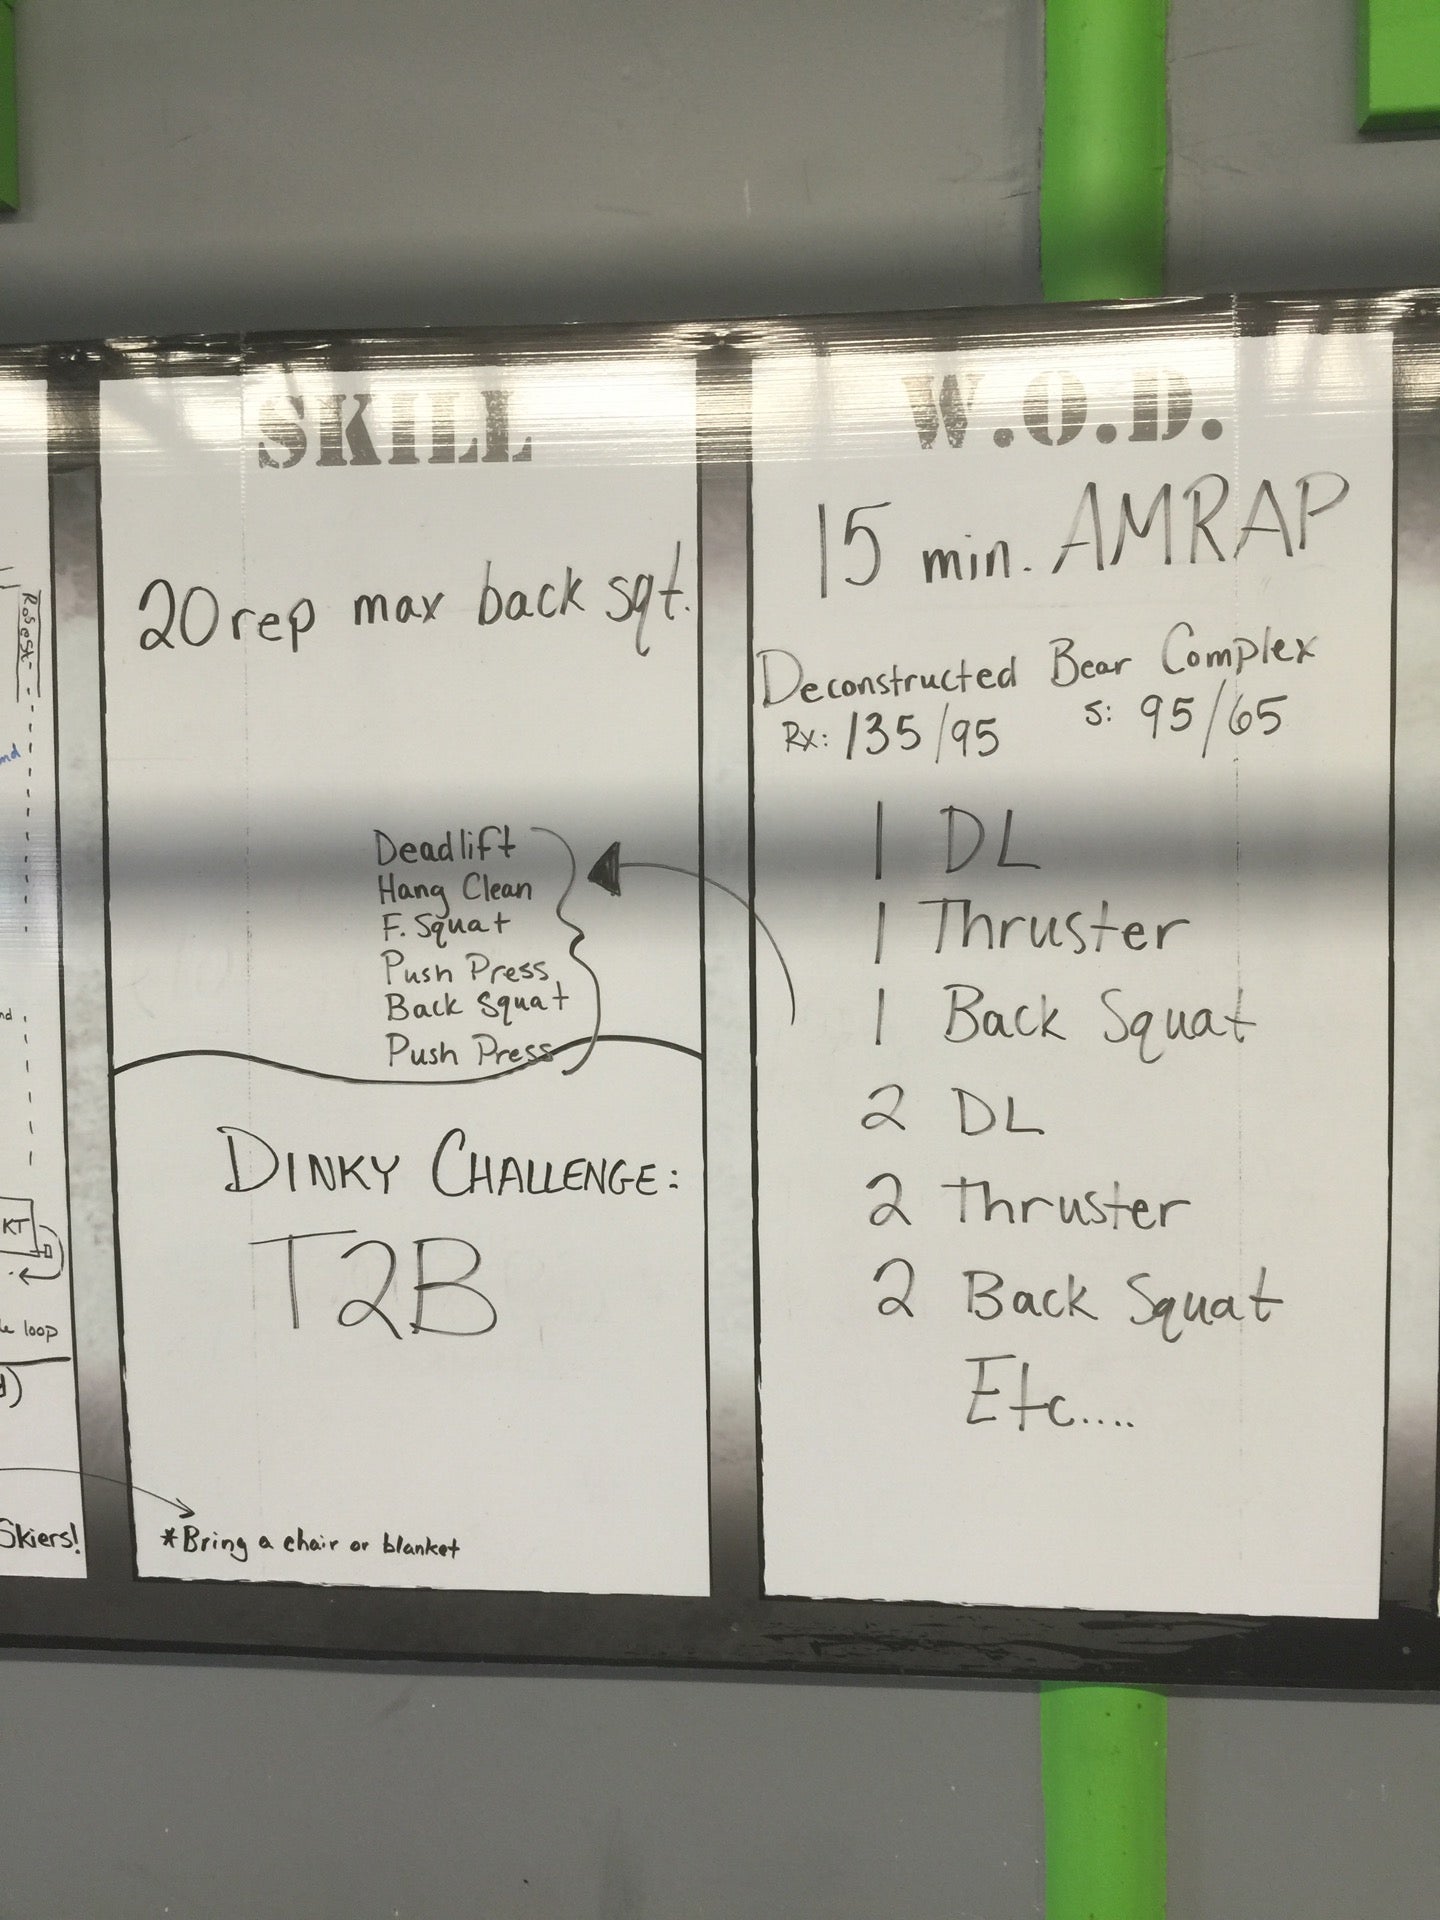 SKILL
20 rep max back sqt.
Deadlift
Hang Clean
F. Squat
Push Press
Back Squat
Push Press
DINKY CHALLENGE:
T2B
*Bring a chair or blanket
W.O.D.
15 min. AMRAP
Deconstructed Bear Complex
Rx: 135/95 S: 95/65
1 DL
1 Thruster
1 Back Squat
2 DL
2 Thruster
2 Back Squat
Etc....
KT
loop
Skiers!